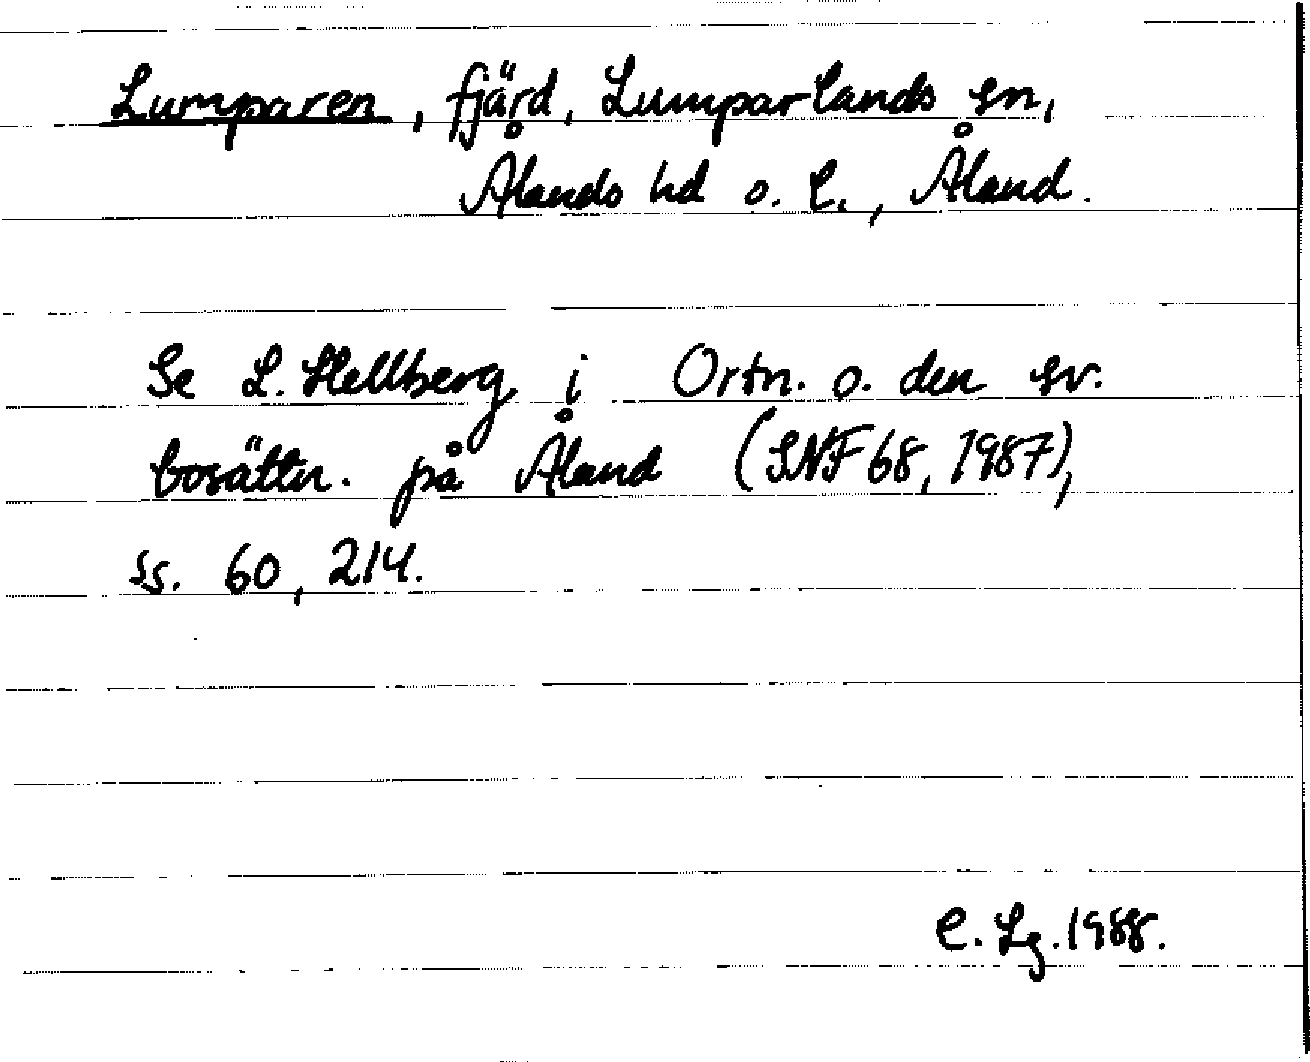 Lumparen, fjärd, Lumparlands sn,
Ålands hd o. l., Åland.
Se L. Hellberg i Ortn. o. den sv.
bosättn. på Åland (SNF 68, 1987),
ss. 60, 214.
C. Lg. 1988.